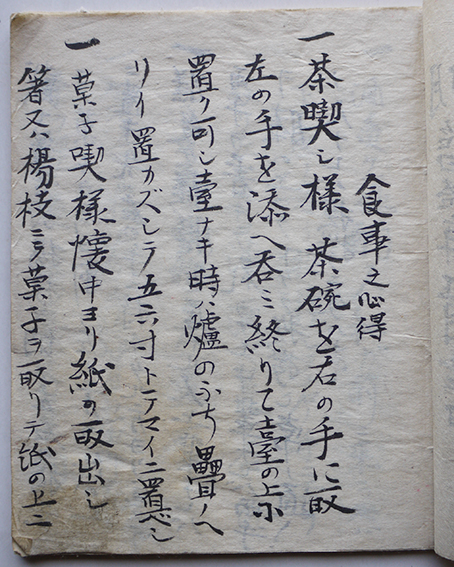 食事之心得
一茶喫シ様 茶碗を右の手に取
左の手を添へ呑ミ終りて臺の上ホ
置ク可シ臺ナキ時ハ爐のふち疊ノヘ
リイ置カズシテ五六寸トテマイニ置べし
一菓子喫様懐中ヨリ紙ヲ取出シ
箸又ハ楊枝ニテ菓子ヲ取リテ紙の上ニ